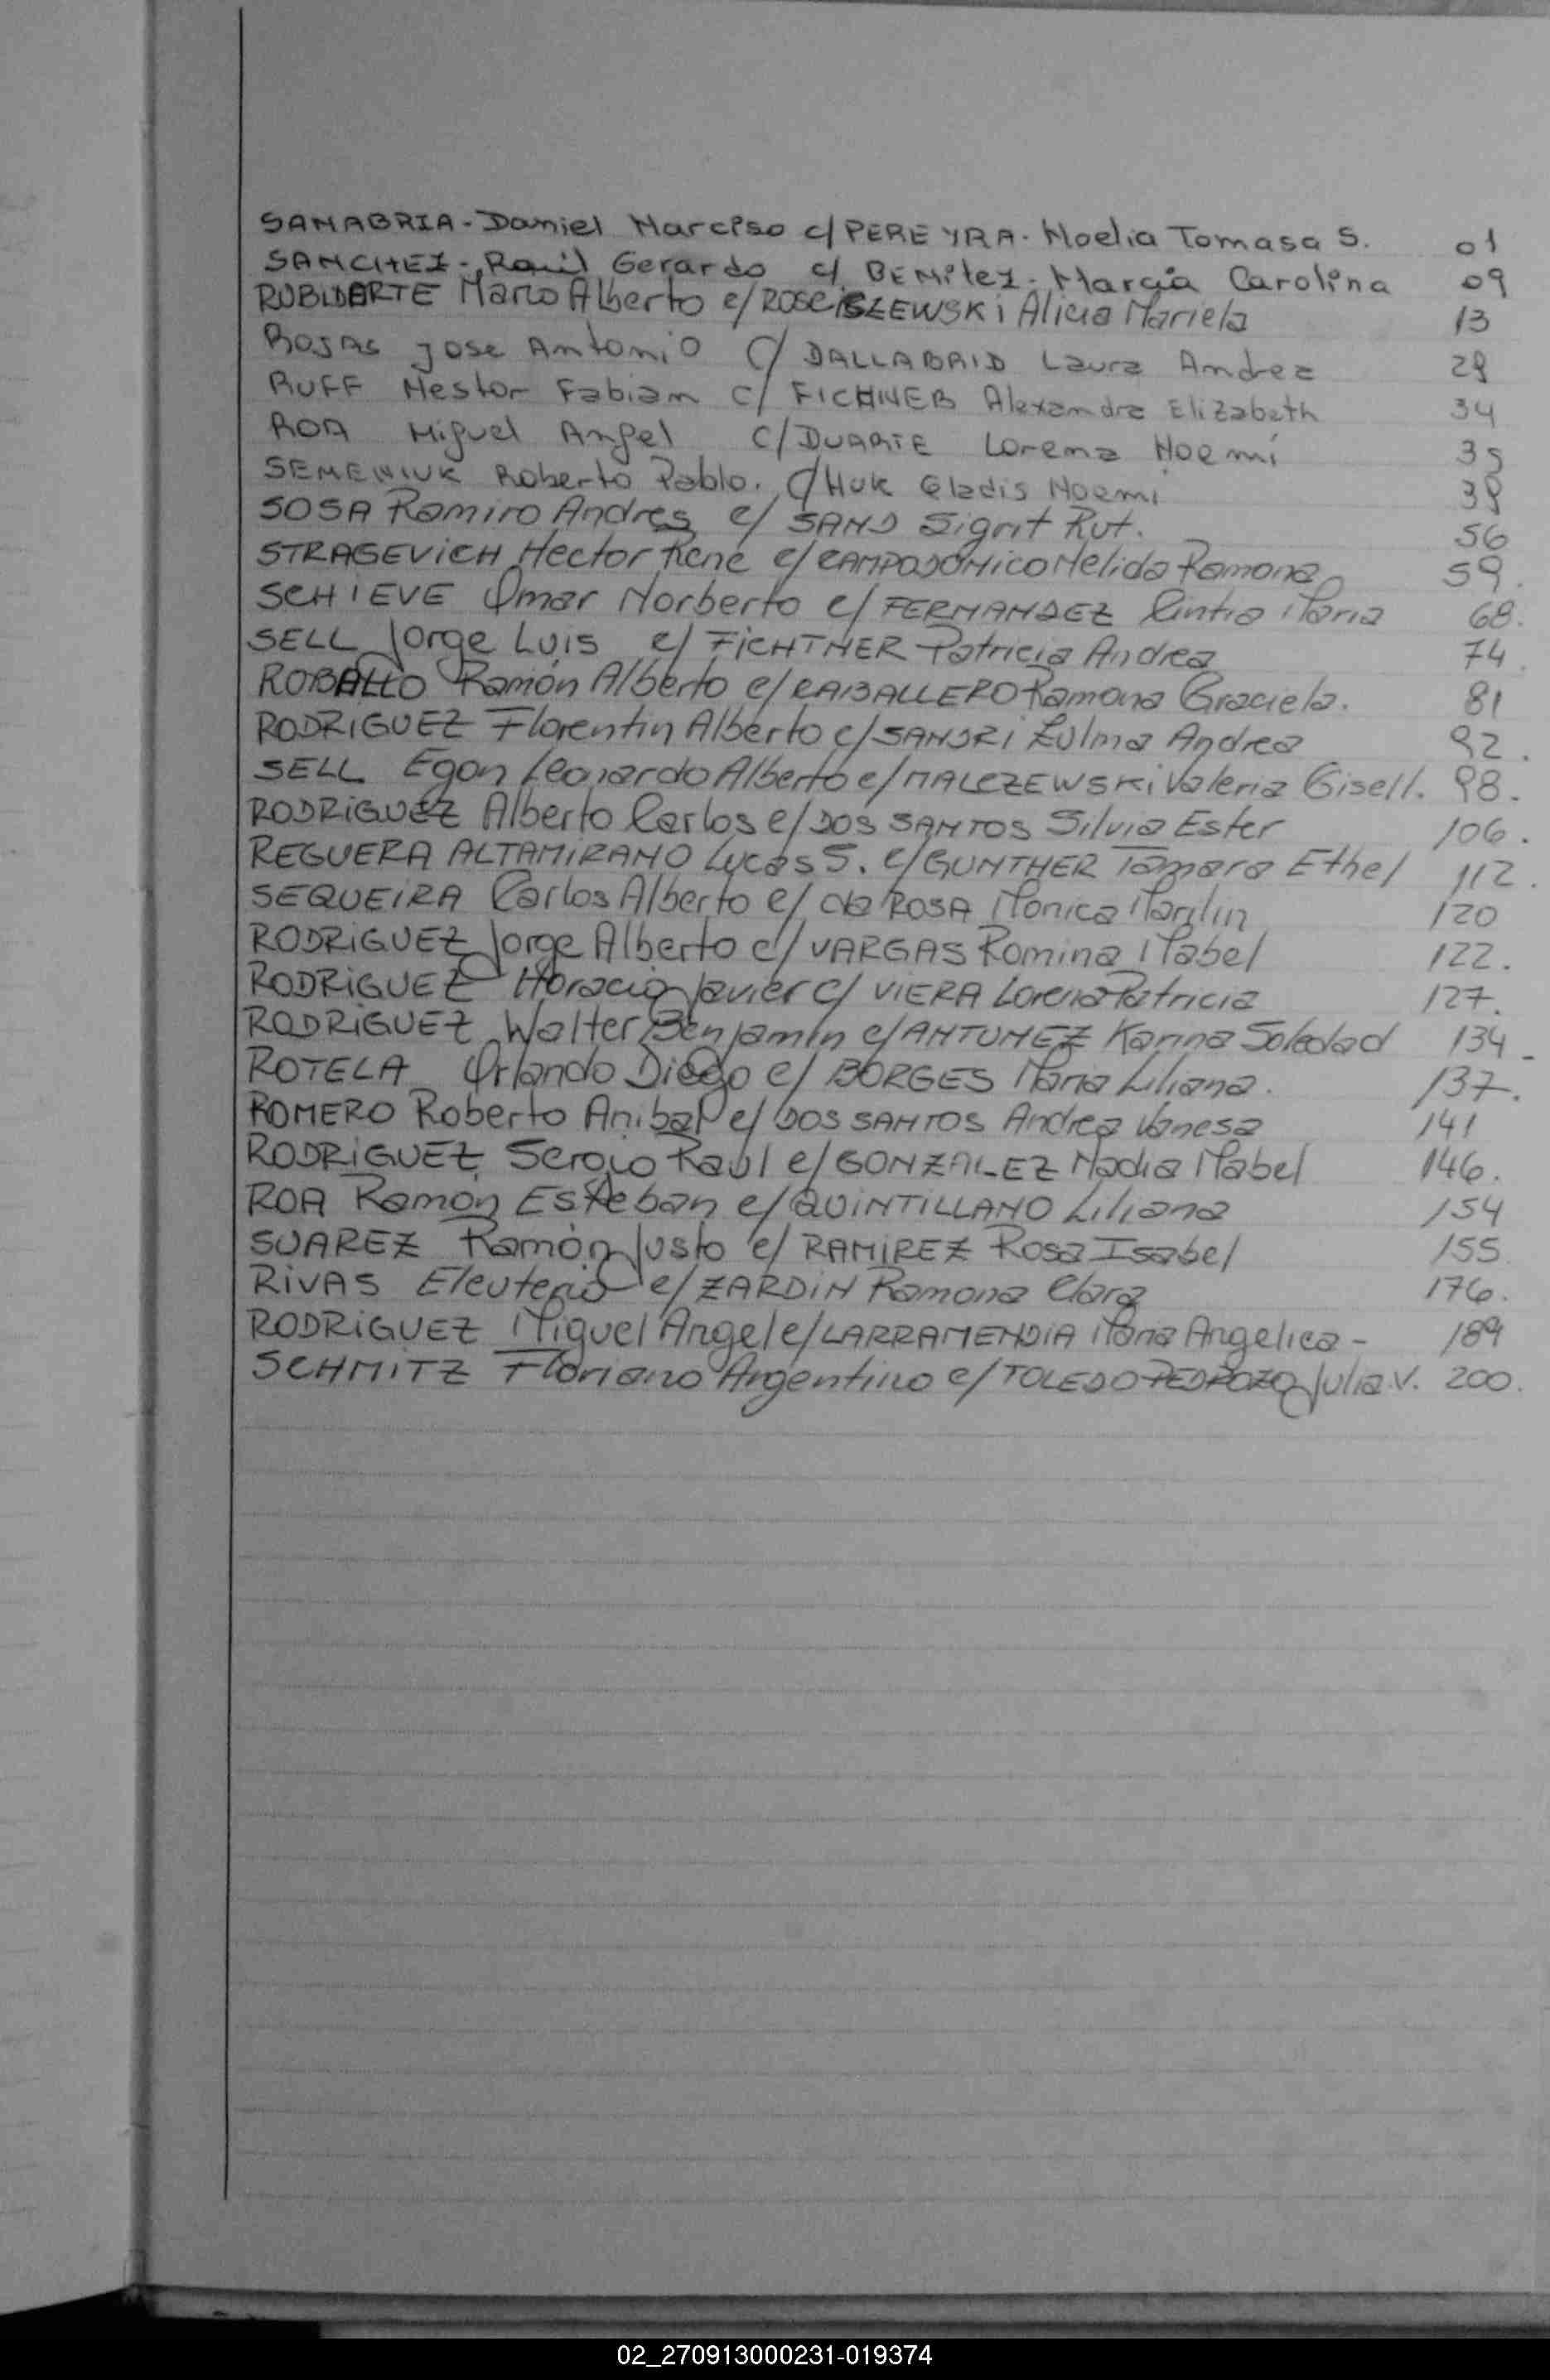 SANABRIA - Daniel Narciso c/ PEREYRA - Noelia Tomasa S. 01
SANCHEZ - Raúl Gerardo c/ BENitez - Marcia Carolina 09
ROBIDARTE Mario Alberto c/ ROSCISZEWSKi Alicia Mariela 13
ROJAS Jose Antonio C/ DALLABRID Laura Andrea 29
RUFF Nestor Fabian C/ FICHNER Alexandra Elizabeth 34
ROA Miguel Angel C/ DUARTE Lorena Noemí 35
SEMENIUK Roberto Pablo. C/ HUK Gladis Noemi 39
SOSA Ramiro Andres c/ SAND Sigrit Rut. 56
STRAGEVICH Hector Rene c/ CAMPODONICO Nelida Ramona 59.
SCHIEVE Omar Norberto c/ FERNANDEZ Cintia Maria 68.
SELL Jorge Luis c/ FICHTNER Patricia Andrea 74.
ROBALLO Ramón Alberto c/ CABALLERO Ramona Graciela. 81
RODRIGUEZ Florentin Alberto c/ SANDRI Zulma Andrea 92.
SELL Egon Leonardo Alberto c/ MALCZEWSKi Valeria Gisell. 98.
RODRiGUEZ Alberto Carlos c/ DOS SANTOS Silvia Ester 106.
REGUERA ALTAMIRANO Lucas S. c/ GUNTHER Tamara Ethel 112.
SEQUEIRA Carlos Alberto c/ da ROSA Monica Marilin 120
RODRiGUEZ Jorge Alberto c/ VARGAS Romina Mabel 122.
RODRiGUEZ Horacio Javier c/ VIERA Lorena Patricia 127.
RODRiGUEZ Walter Benjamin c/ ANTUNEZ Karina Soledad 134.
ROTELA Orlando Diego c/ BORGES Maria Liliana. 137.
ROMERO Roberto Anibal c/ DOS SANTOS Andrea Vanesa 141
RODRiGUEZ Sergio Raúl c/ GONZALEZ Nadia Mabel 146.
ROA Ramón Esteban c/ QUiNTiLLANO Liliana 154
SUAREZ Ramón Justo c/ RAMiREZ Rosa Isabel 155
RiVAS Eleuterio c/ ZARDiN Ramona Clara 176.
RODRiGUEZ Miguel Angel c/ LARRAMENDIA Maria Angelica - 189
SCHMiTZ Floriano Argentino c/ TOLEDO PEDROZO Julia V. 200.
02_270913000231-019374